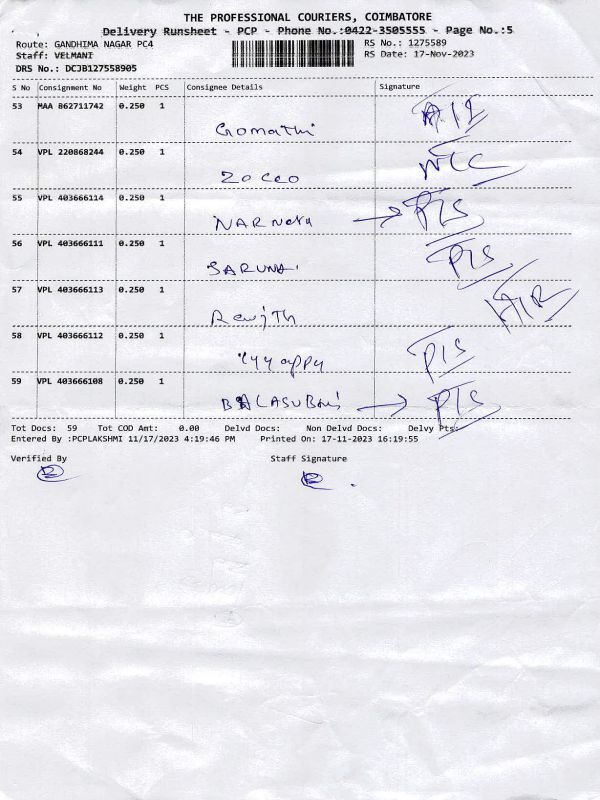 THE PROFESSIONAL COURIERS, COIMBATORE
Delivery Runsheet - PCP - Phone No.:0422-3505555 - Page No.:5
Route: GANDHIMA NAGAR PC4
RS No.: 1275589
Staff: VELMANI
RS Date: 17-Nov-2023
DRS No.: DCJB127558905
S No Consignment No Weight PCS Consignee Details Signature
53 MAA 862711742 0.250 1
Gomathi
54 VPL 220868244 0.250 1
Zocco NLC
55 VPL 403666114 0.250 1
P/S
56 VPL 403666111 0.250 1
P/S
57 VPL 403666113 0.250 1
58 VPL 403666112 0.250 1
P/S
59 VPL 403666108 0.250 1
P/S
Tot Docs: 59 Tot COD Amt: 0.00 Delvd Docs: Non Delvd Docs: Delvy Pts:
Entered By :PCPLAKSHMI 11/17/2023 4:19:46 PM Printed On: 17-11-2023 16:19:55
Verified By Staff Signature